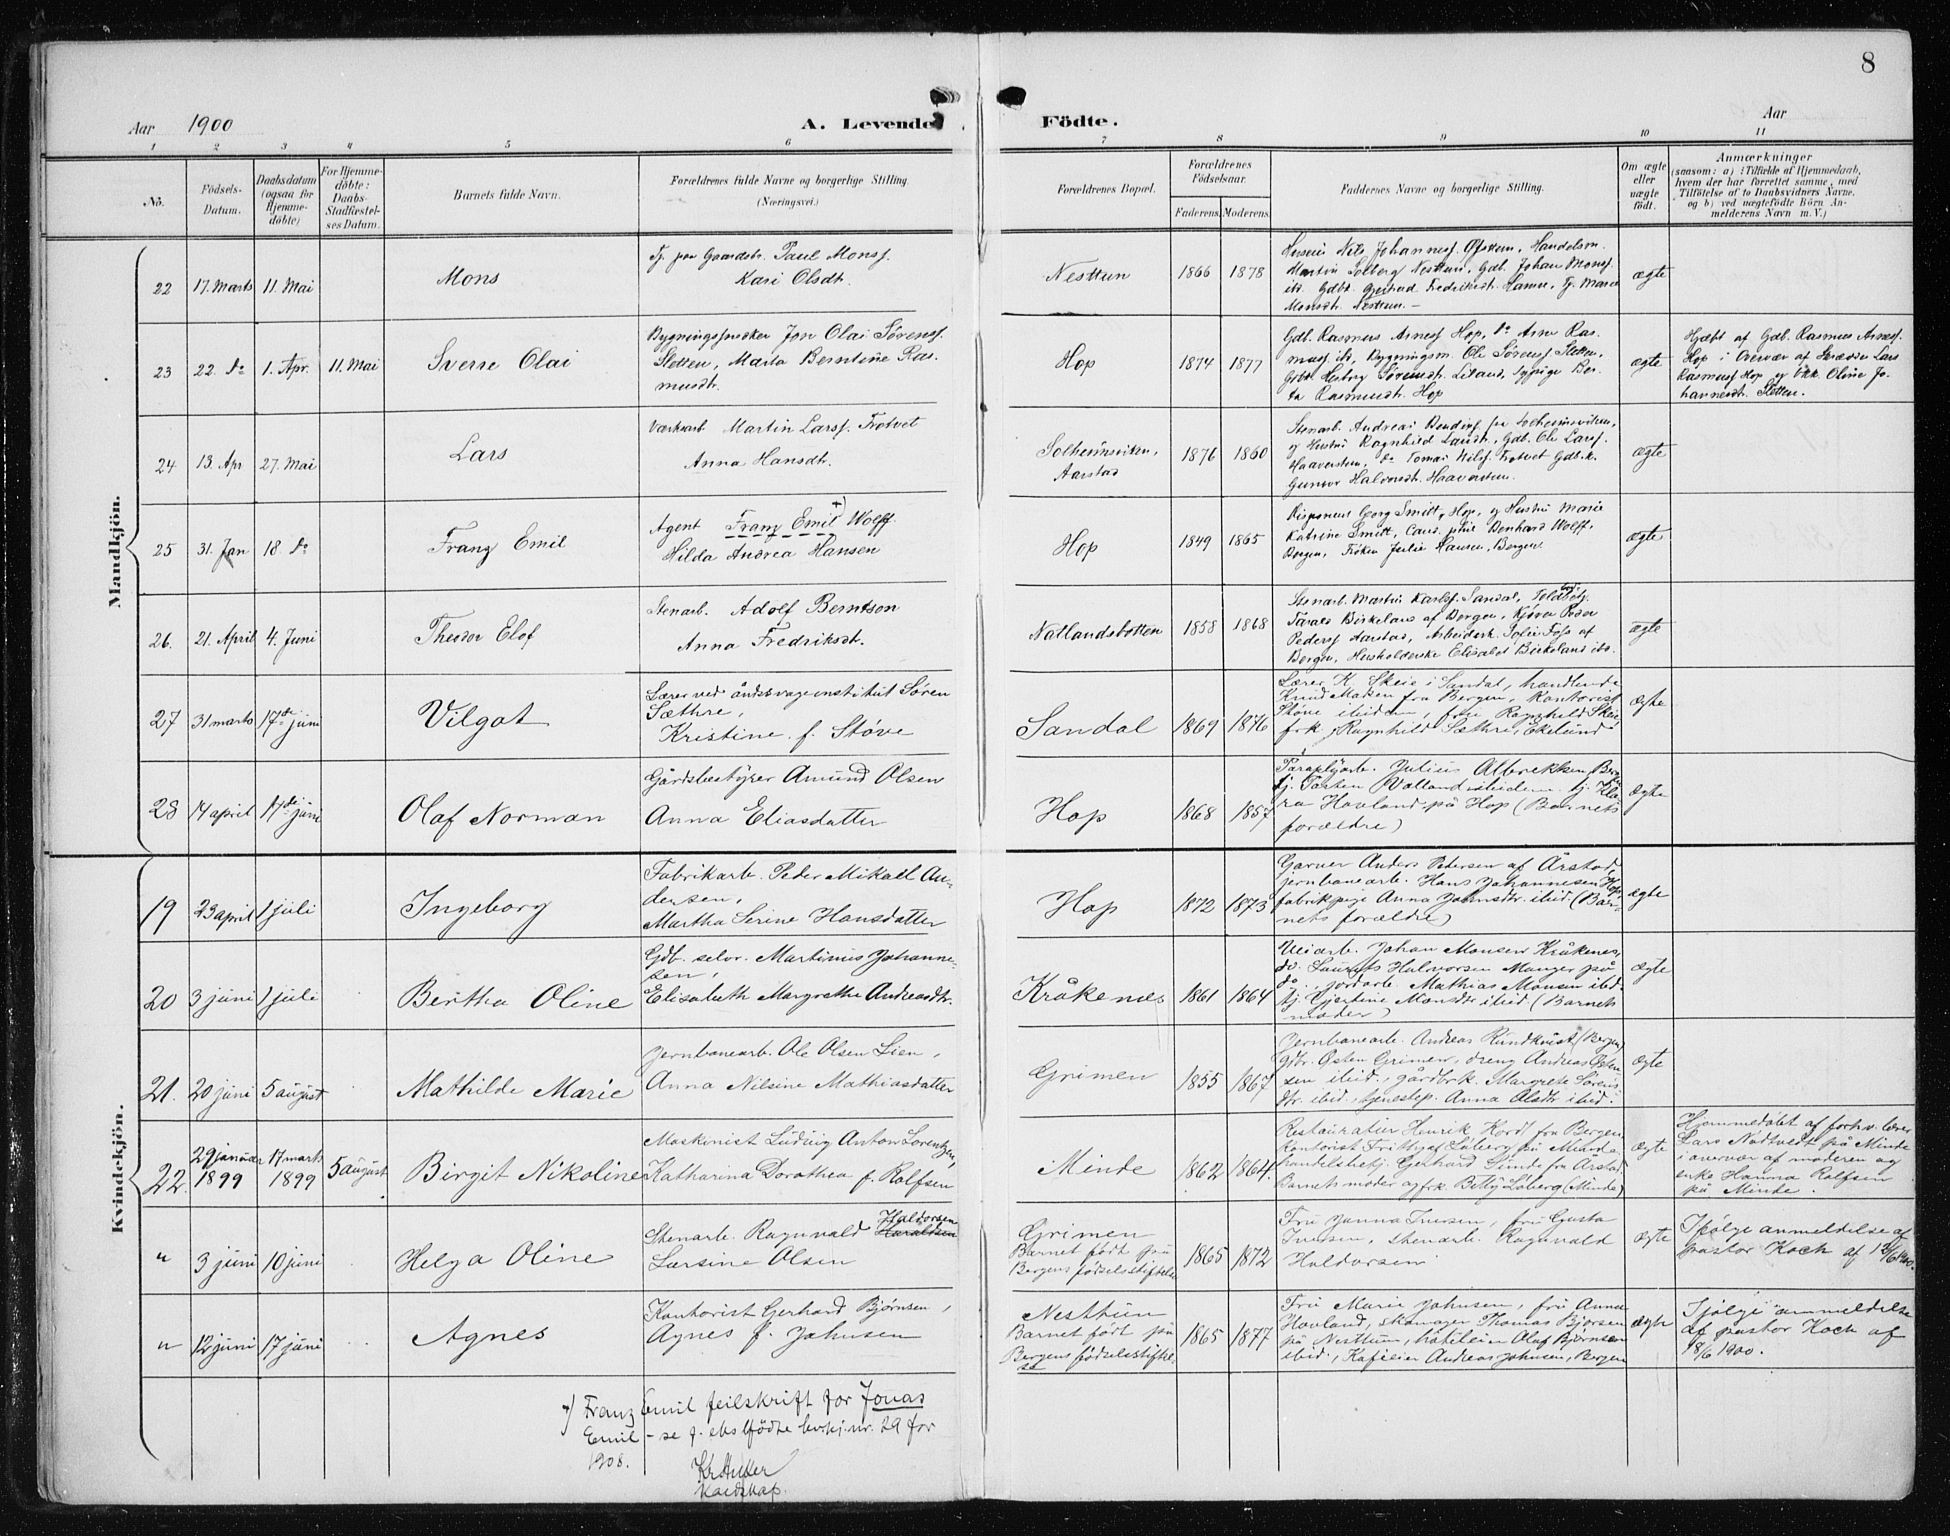 8
Aar 1900
A. Levende Födte.
Aar
1 2 3 4 5 6 7 8 9 10 11
No.
Födsels-
Datum.
Daabsdatum
(ogsaa för
Hjemme-
döbte)
For Hjemme-
döbte:
Daabs-
Stadfæstel-
ses Datum.
Barnets fulde Navn.
Forældrenes fulde Navne og borgerlige Stilling.
(Næringsvei.)
Forældrenes Bopæl.
Forældrenes
Födselsaar.
Faderens. Moderens.
Faddernes Navne og borgerlige Stilling.
Om ægte
eller
uægte
födt.
Anmærkninger
(saasom: a) i Tilfælde af Hjemmedaab,
hvem der har forrettet samme, med
Tilföielse af to Daabsvidners Navne.
og b) ved uægtefödte Börn An-
melderens Navn m. V.)
Mandkjön.
22 17. Marts 11. Mai
Mons
Paul Monsf.
Kari Olsdt.
Nesttun
1866 1878
Nils Johannesf. Øfsttun, Handelsm.
Martin Solberg Nesttun, Gdb. Johan Monsf.
Monsdt. Nesttun.
ægte
23 22. do 1. Apr. 11. Mai
Sverre Olai
Jon Olai Sørensf.
Sletten, Marta Berntine Ras-
musdt.
Hop
1874 1877
Gdb. Rasmus Arnesf. Hop, do Arne Ras-
musf. ib., Bygningsm. Ole Sørensf. Sletten,
ta Rasmusdt. Hop
ægte
Hjdbt af Gdb. Rasmus Arnesf.
Hop i Overvær af Lars
Rasmusf Hop og Oline Jo-
hannesdt. Sletten.
24 13. Apr 27. Mai
Lars
Martin Larsf. Trotvet
Anna Hansdt.
Solheimsviken,
Aarstad
1876 1860
Stenarb. Andreas
og Hustru Ragnhild Gdb. Ole Larsf.
do Tomas Nilsf. Trotvet Gdb.k.
Gunvor Halvorsdt.
ægte
25 31. Jan 18. do
Franz Emil
Agent Franz Emil +) Wolff
Hilda Andrea Hansen
Hop
1849 1865
Disponent Georg Smitt, Hop, og Hustru Marie
Katrine Smitt, Cand. phil Bernhard Wolff,
Bergen, Frøken Julie Hansen, Bergen.
ægte
26. 21. April 4. Juni
Theodor Elof
Stenarb. Adolf Berntson
Anna Fredriksdt.
Natlandsbotten
1858 1868
Stenarb. Martin Karlsf. Sandal,
Birkeland af Bergen, Peder
Pedersf Aarstad, Arbeiderk. Sofie Foss af
Bergen, Husholderske Elisabet Birkeland ibd.
ægte
27 31 marts 17de juni
Vilgot
Lærer ved åndssvageinstitut Søren
Sæthre,
Kristine f. Støve
Sandal
1869 1876
Lærer K. Skeie i Sandal, handlende
Knud Madsen fra Bergen, kontorist
Støve ibidem, fru Ragnhild Skeie,
frk. Ragnhild Sæthre, Ekelund
ægte
28 14 april 17de juni
Olaf Norman
Gårdsbestyrer Amund Olsen
Anna Eliasdatter
Hop
1868 1857
Paraplyarb. Julius Albrektsen, Berg.
tj. Torsten Vatland ibidem. tj. Kla-
ra Hovland på Hop (Barnets
forældre)
ægte
Kvindekjön.
19 23 april 1 juli
Ingeborg
Fabrikarb. Peder Mikall An-
dersen,
Martha Serine Hansdatter
Hop
1872 1873
Garver Anders Petersen af Årstad,
jernbanearb. Hans Johannesen Hop,
fabrikpige Anna Johnsdtr. ibid (Bar-
nets forældre)
ægte
20 3 juni 1 juli
Bertha Oline
Gdb. selv. Martinus Johanne-
sen,
Elisabeth Margrethe Andreasdtr.
Kråkenes
1861 1864
Veiarb. Johan Monsen Kråkenes,
do. Laurits Halvorsen Manger på
do., jordarb. Mathias Monsen ibid.
tj. Gjertine Monsdtr ibid (Barnets
moder)
ægte
21. 20 juni 5 august
Mathilde Marie
Jernbanearb. Ole Olsen Lien,
Anna Nilsine Mathiasdatter
Grimen
1855 1867
Jernbanearb. Andreas Rundkvist (Bergen)
gdbr. Østen Grimen, dreng Andreas Østen-
sen ibid., gårdbrk. Margrete Sørens-
dtr. ibid., tjenestep. Anna Olsdtr ibid.
ægte
22. 29 januar 1899 17 marts 1899 5 august
Birgit Nikoline
Maskinist Ludvig Anton Lorentzen,
Katharina Dorothea f. Rolfsen
Minde
1862 1864.
Restauratør Henrik Kord fra Bergen
kontorist Fritthjof Løberg på Minde
handelsbetj. Gerhard Sunde fra Årstad
Barnets moder og frk. Betty Løberg (Minde)
ægte
Hjemmedøbt af forhv. lærer
Lars Nødtvedt på Minde
i overvær af moderen og
enke Hanna Rolfsen
på Minde.
" 3 juni 10 juni
Helga Oline
Stenarb. Ragnvald Haraldsen Haldorsen
Lærsine Olsen
Grimen
Barnet født på
Bergens fødselsstiftelse
1865 1872
Fru Janna Iversen, fru Gusta
Iversen, stenarb. Ragnvald
Haldorsen
ægte
Ifølge anmeldelse af
pastor Koch af 12/6 1900.
" 12 juni 17 juni
Agnes
Kontorist Gerhard Bjørnsen,
Agnes f. Johnsen
Nesttun
Barnet født på
Bergens fødselsstiftel-
se
1865 1877
Fru Marie Johnsen, fru Anna
Hovland, skomager Thomas Bjørsen
på Nesttun, hotelier Olaf Bjørnsen
ibid., Kafeeier Andreas Johnsen, Bergen
ægte
Ifølge anmeldelse
af pastor Koch af
18/6 1900.
+) Franz Emil feilskrift for Jonas
Emil – se f. eks lfödte kvkj. nr. 29 for
1908.